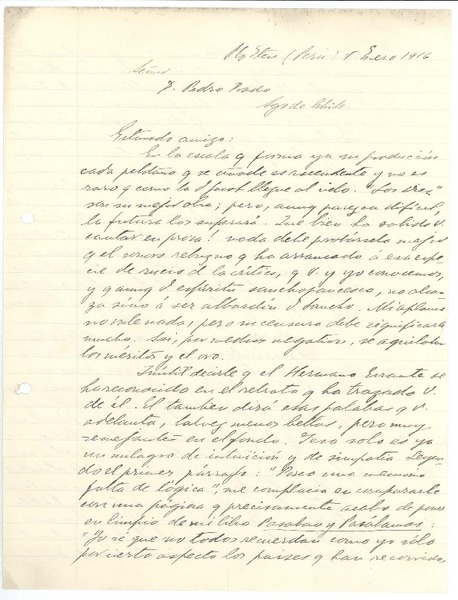 Pto Eten (Perú) 1 Enero 1916
Señor
D. Pedro Prado
Sgo de Chile
Estimado amigo:
En la escala q forma ya su producción
cada peldaño q se añade es ascendente y no es
raro q como la d Jacob llegue al cielo. "Los Diez"
son su mejor obra; pero, aunq parezca difícil,
la futura los superará. Qué bien ha sabido V.
cantar en prosa! nada debe probárselo mejor
q el sonoro rebuzno q ha arrancado á esa espe-
cie de rucio de la crítica, q V. y yo conocemos,
y aunq d espíritu sanchopancesco, no alcan-
za sino á ser albardín d Sancho. Mi aplauso
no vale nada, pero su censura debe significarle
mucho. Así, por medios negativos, se aquilatan
los méritos y el oro.
Inútil decirle q el Hermano Errante se
ha reconocido en el retrato q ha trazado V.
de él. El también dirá esas palabras q V.
adelanta, talvez menos bellas, pero muy
semejantes en el fondo. Pero solo es ya
un milagro de intuición y de simpatía. Leyen-
do el primer párrafo: "Poseo una memoria
falta de lógica", me complacía en compararlo
con una página q precisamente acabo de poner
en limpio de mi libro Pasaban y Pasábamos:
"Yo sé que no todos recuerdan como yo sólo
por cierto aspecto los países q han recorrido